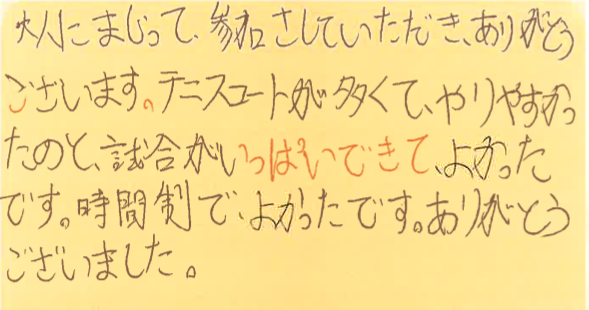 大人にまじって、参加させていただき、ありがとう
ございます。テニスコートが多くて、やりやすかっ
たのと、試合がいっぱいできて、よかった
です。時間制で、よかったです。ありがとう
ございました。